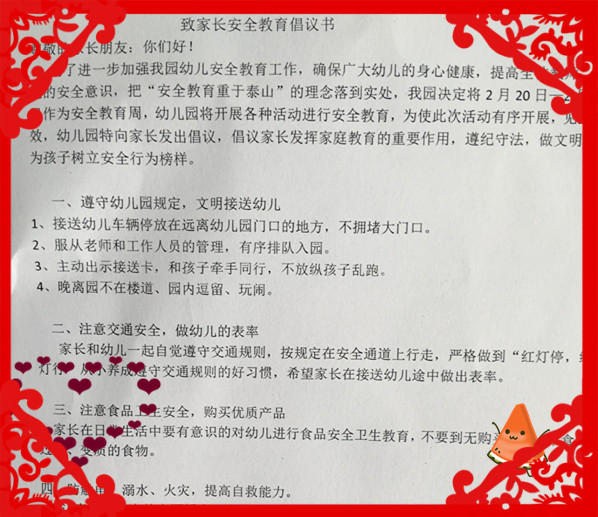 致家长安全教育倡议书
长朋友：你们好！
了进一步加强我园幼儿安全教育工作，确保广大幼儿的身心健康，提高
的安全意识，把“安全教育重于泰山”的理念落到实处，我园决定将2月20日—
作为安全教育周，幼儿园将开展各种活动进行安全教育，为使此次活动有序开展，
效，幼儿园特向家长发出倡议，倡议家长发挥家庭教育的重要作用，遵纪守法，做文明
为孩子树立安全行为榜样。
一、遵守幼儿园规定，文明接送幼儿
1、接送幼儿车辆停放在远离幼儿园门口的地方，不拥堵大门口。
2、服从老师和工作人员的管理，有序排队入园。
3、主动出示接送卡，和孩子牵手同行，不放纵孩子乱跑。
4、晚离园不在楼道、园内逗留、玩闹。
二、注意交通安全，做幼儿的表率
家长和幼儿一起自觉遵守交通规则，按规定在安全通道上行走，严格做到“红灯停，
灯行”从小养成遵守交通规则的好习惯，希望家长在接送幼儿途中做出表率。
三、注意食品卫生安全，购买优质产品
家长在日常生活中要有意识的对幼儿进行食品安全卫生教育，不要到无购 食
变质的食物。
四 溺水、火灾，提高自救能力。